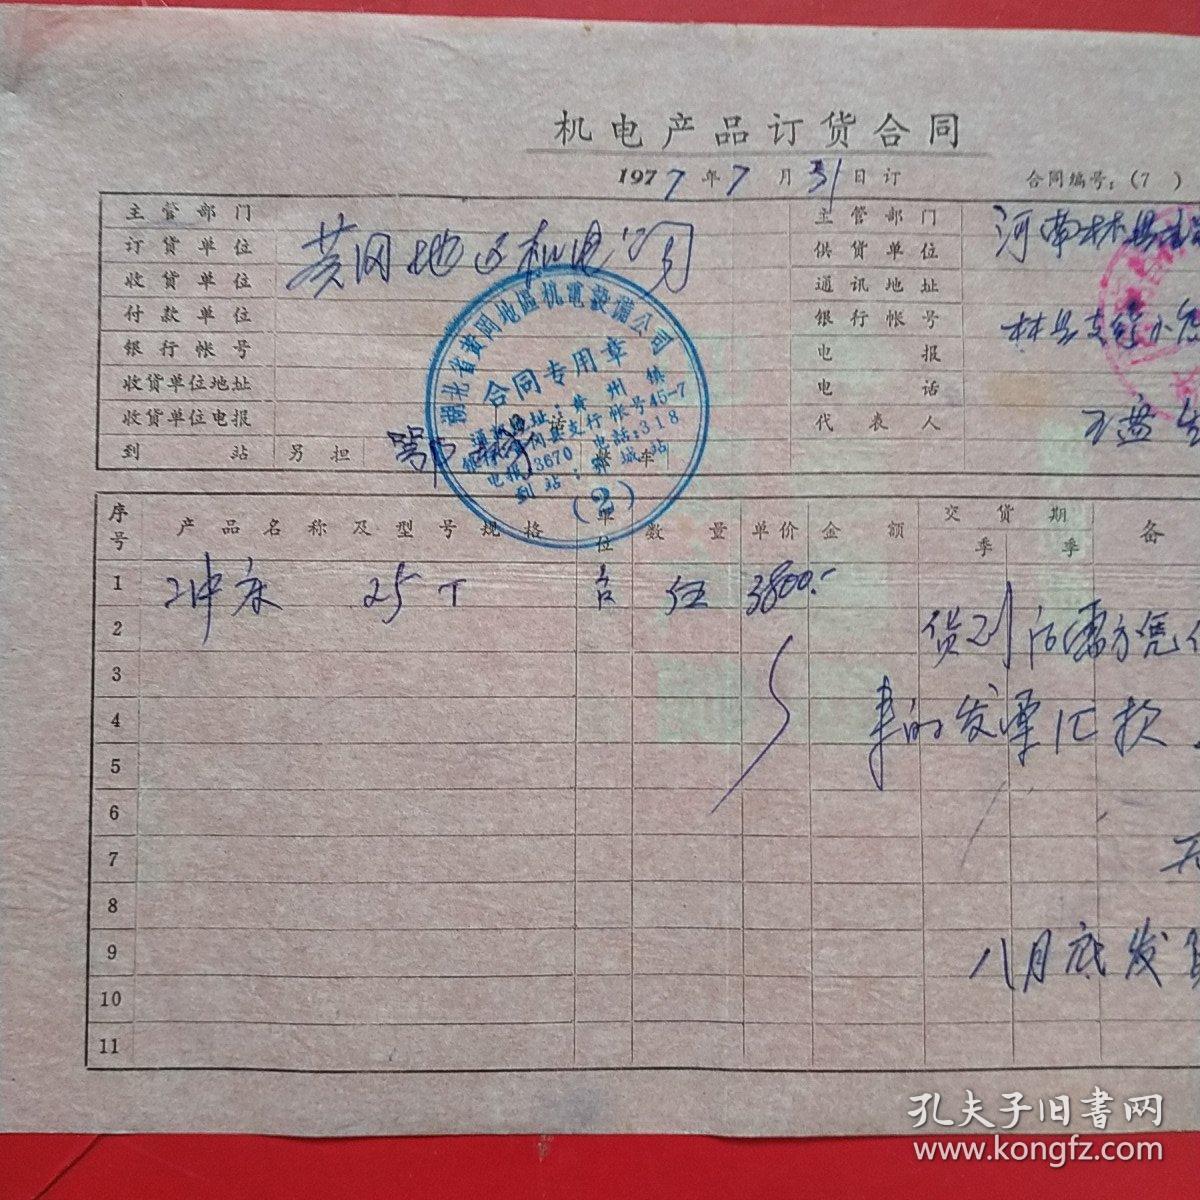 机电产品订货合同
1977年7月31日订
合同编号:(7 )
主管部门
订货单位 黄冈地区机电公司
收货单位
付款单位
银行帐号
收货单位地址
收货单位电报
到 站 另 担
主管部门 河南林县
供货单位
通讯地址
银行帐号 林县支行
电 报
电 话
代表人
湖北省黄冈地區机電設備公司
合同专用章
黄州镇
支行帐号45-7
电报:3670 电话:318
到站:
(2)
序号 产品名称及型号规格 单位 数量 单价 金额 交货期 备
季 季
1 冲床 25T 台 伍 3800.-
2 货到后需方凭
3
4 来的发票汇款
5
6
7
8
9 八月底发
10
11
孔夫子旧书网
www.kongfz.com